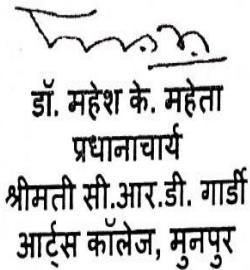 डॉ. महेश के. महेता
प्रधानाचार्य
श्रीमती सी.आर.डी. गार्डी
आर्ट्स कॉलेज, मुनपुर